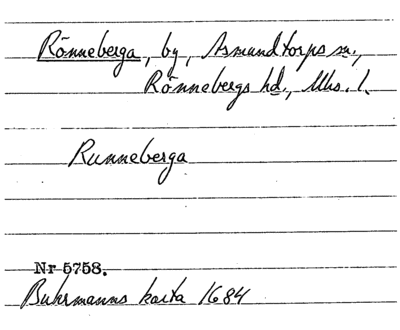 Rönneberga, by, Asmundtorps sn.,
Rönnebergs hd., Mhs. l.
Runneberga
Nr 5758.
Buhrmanns karta 1684